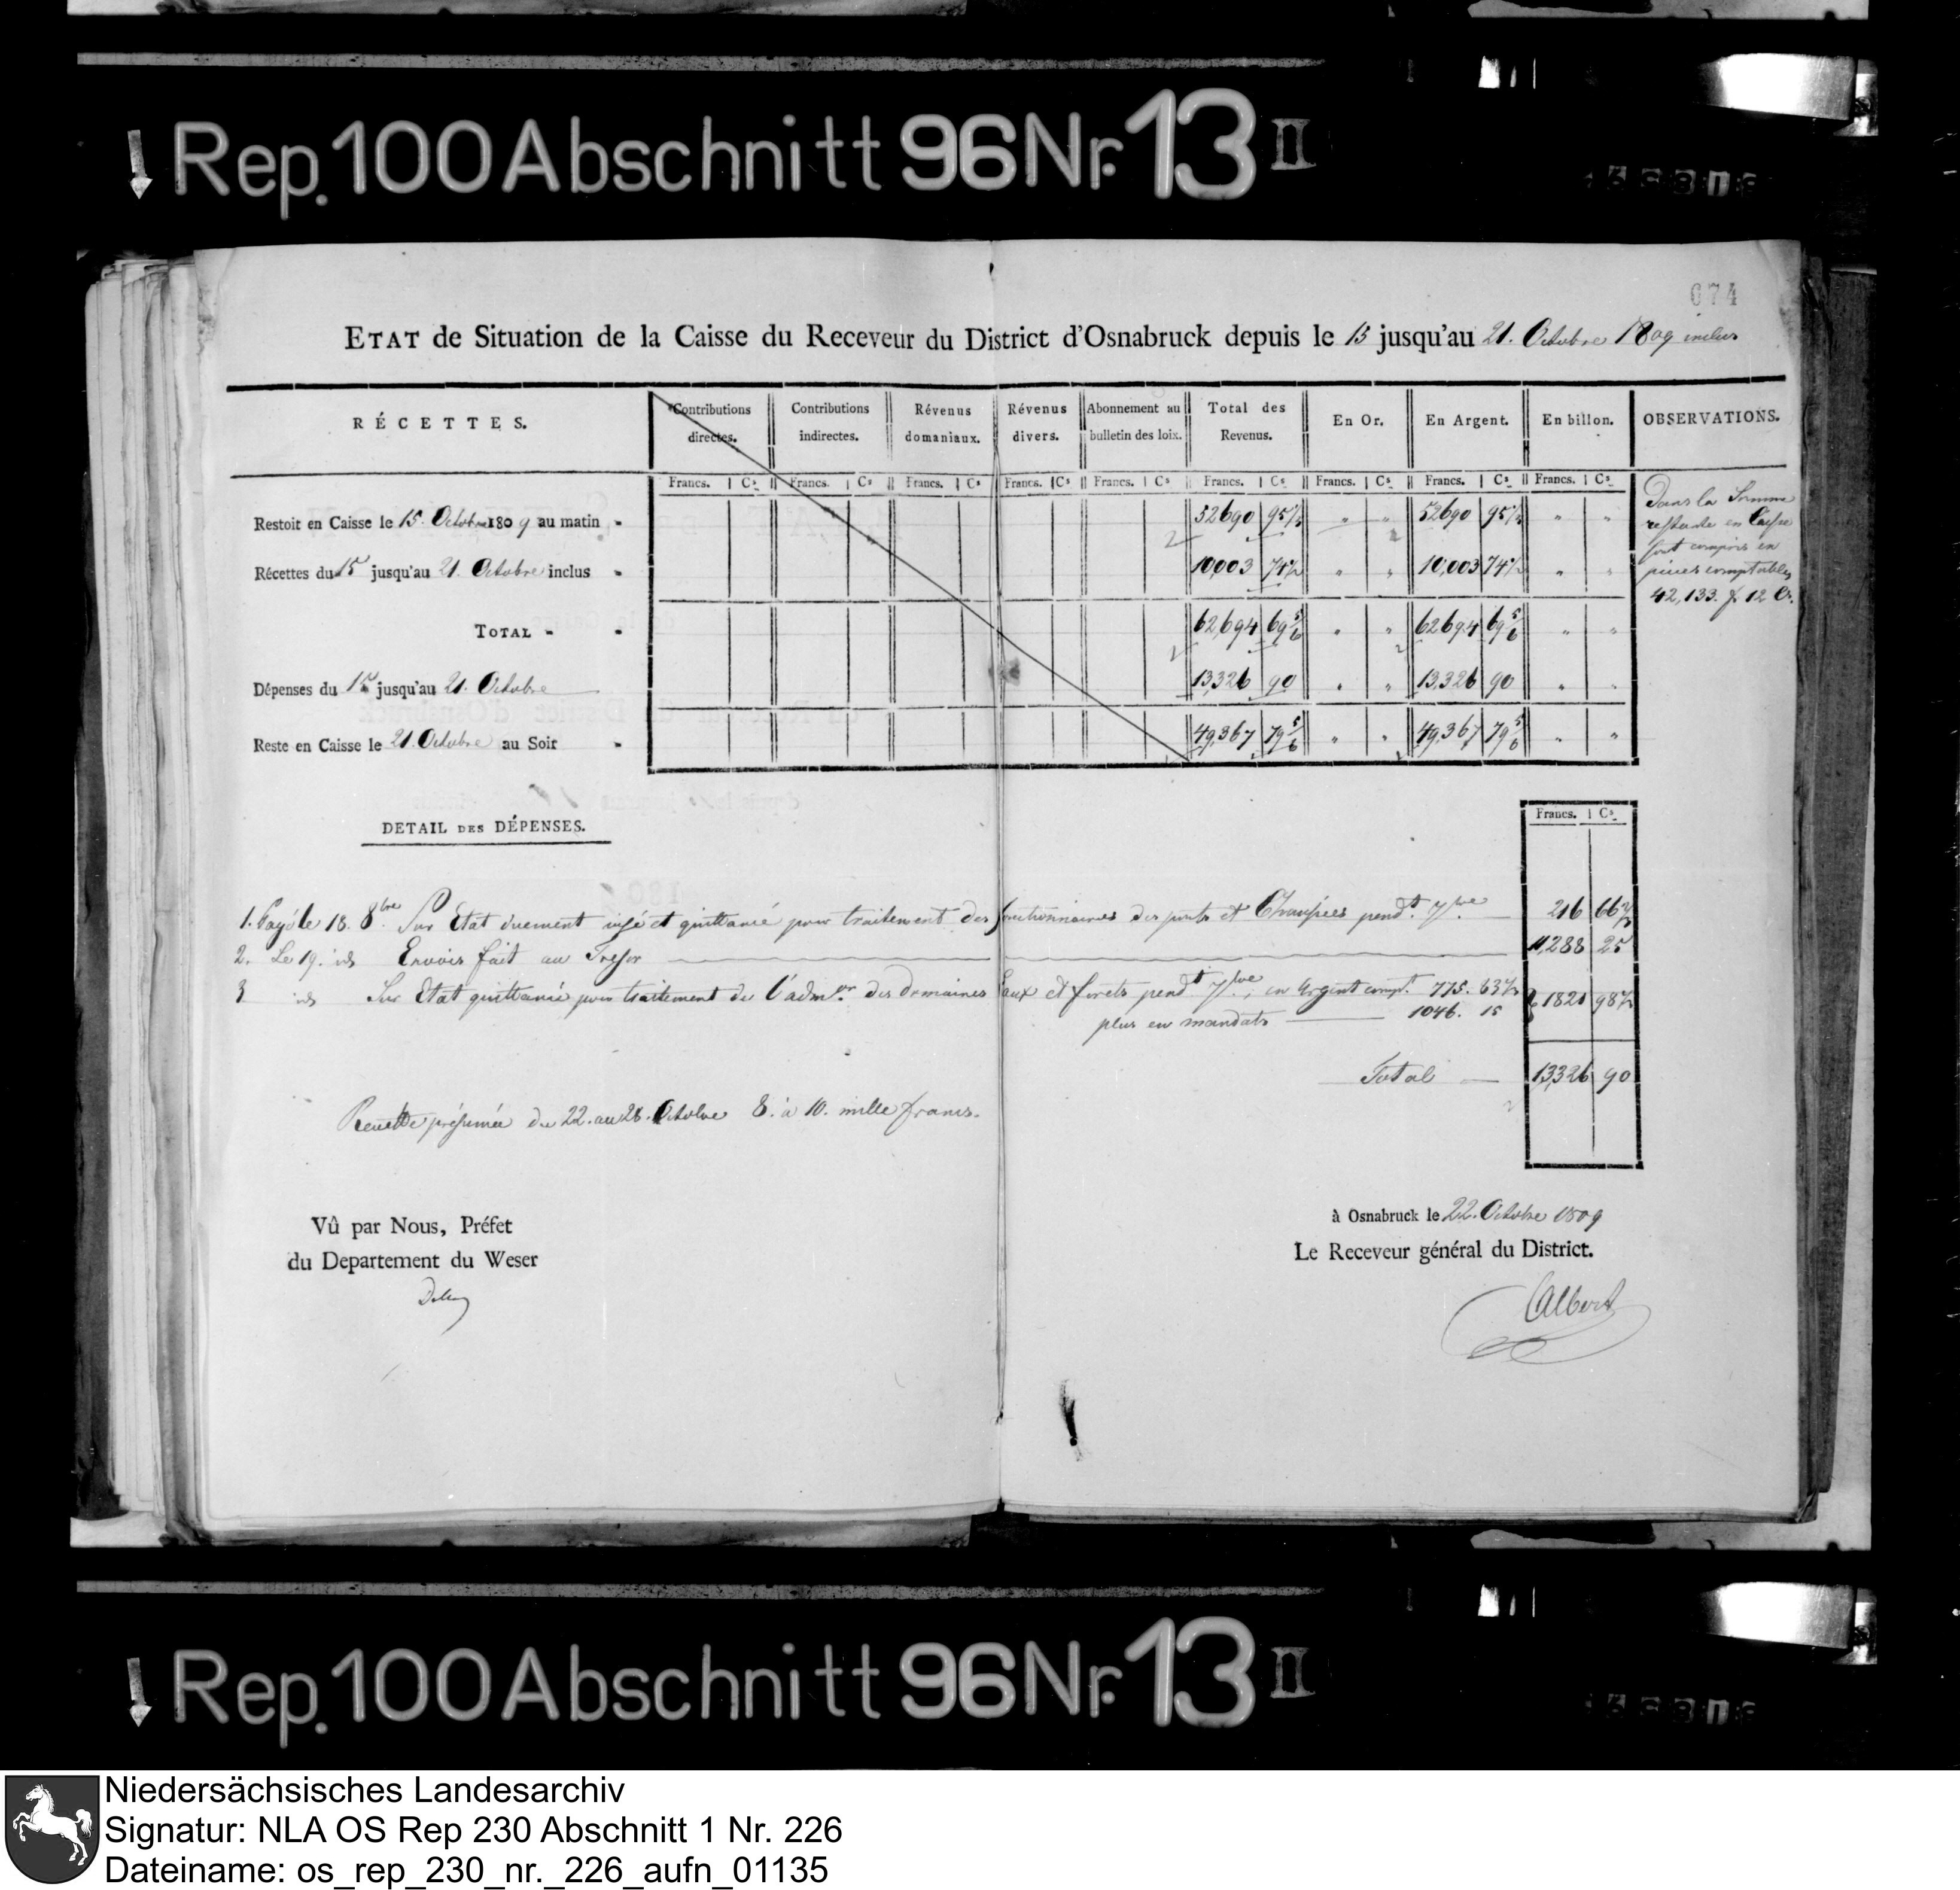 Rep. 100 Abschnitt 96 Nr. 13 II
674
ETAT de Situation de la Caisse du Receveur du District d'Osnabruck depuis le 15 jusqu'au 21. Octobre 1809 inclus
RÉCETTES.
Contributions directes.
Contributions indirectes.
Révenus domaniaux.
Révenus divers.
Abonnement au bulletin des loix.
Total des Revenus.
En Or.
En Argent.
En billon.
OBSERVATIONS.
Francs. Cs. Francs. Cs Francs. Cs Francs. Cs Francs. Cs Francs. Cs Francs. Cs. Francs. Cs. Francs. Cs.
Restoit en Caisse le 15. Octobre 1809 au matin - 52690 95 " " 52690 95 " "
Récettes du 15 jusqu'au 21. Octobre inclus - 10,003 74 " " 10,003 74 " "
TOTAL - - 62,694 69 5/6 " " 62694 69 5/6 " "
Dépenses du 15 jusqu'au 21. Octobre 13,326 90 " " 13,326 90 " "
Reste en Caisse le 21. Octobre au Soir - 49,367 79 5/6 " " 49,367 79 5/6 " "
Dans la Somme
restante en Caisse
sont compris en
pieces comptables
42,133. f 12 Cs.
DETAIL DES DÉPENSES.
Francs. Cs.
1. Payé le 18. 8bre Sur Etat duement visé et quittancé pour traitement des fonctionnaires des ponts et Chaussées pendt. 7bre. 216 66
2. Le 19. Envois fait au Tresor 11,288 25
3 Sur Etat quittancé pour traitement de l'admon. des domaines Eaux et forets pendt 7bre, en Argent compt. 775. 83 1821 98
plus en mandats 1046. 15
Total 13,326 90
Recette présumée du 22. au 28. Octobre 8. à 10. mille francs.
Vû par Nous, Préfet
du Departement du Weser
à Osnabruck le 22. Octobre 1809
Le Receveur général du District.
Calbert
Rep. 100 Abschnitt 96 Nr. 13 II
Niedersächsisches Landesarchiv
Signatur: NLA OS Rep 230 Abschnitt 1 Nr. 226
Dateiname: os_rep_230_nr._226_aufn_01135